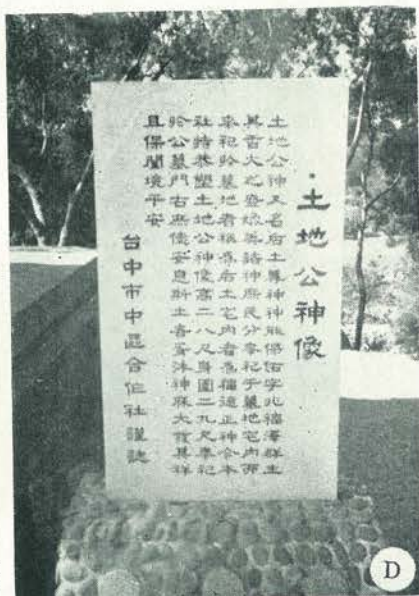 ·土地公神像
土地公神又名后土尊神神能保佑宇兆福澤群生
其大之與諸神庶民分奉祀于墓地宅內而
奉祀於墓地者稱為后土宅內者為福德正神本
社特恭塑土地公神像高二八尺身圍二九尺奉祀
於公墓門右庶使安息斯土者蒙沐神庥大發其祥
且保闔境平安
台中市中區合作社謹誌
D